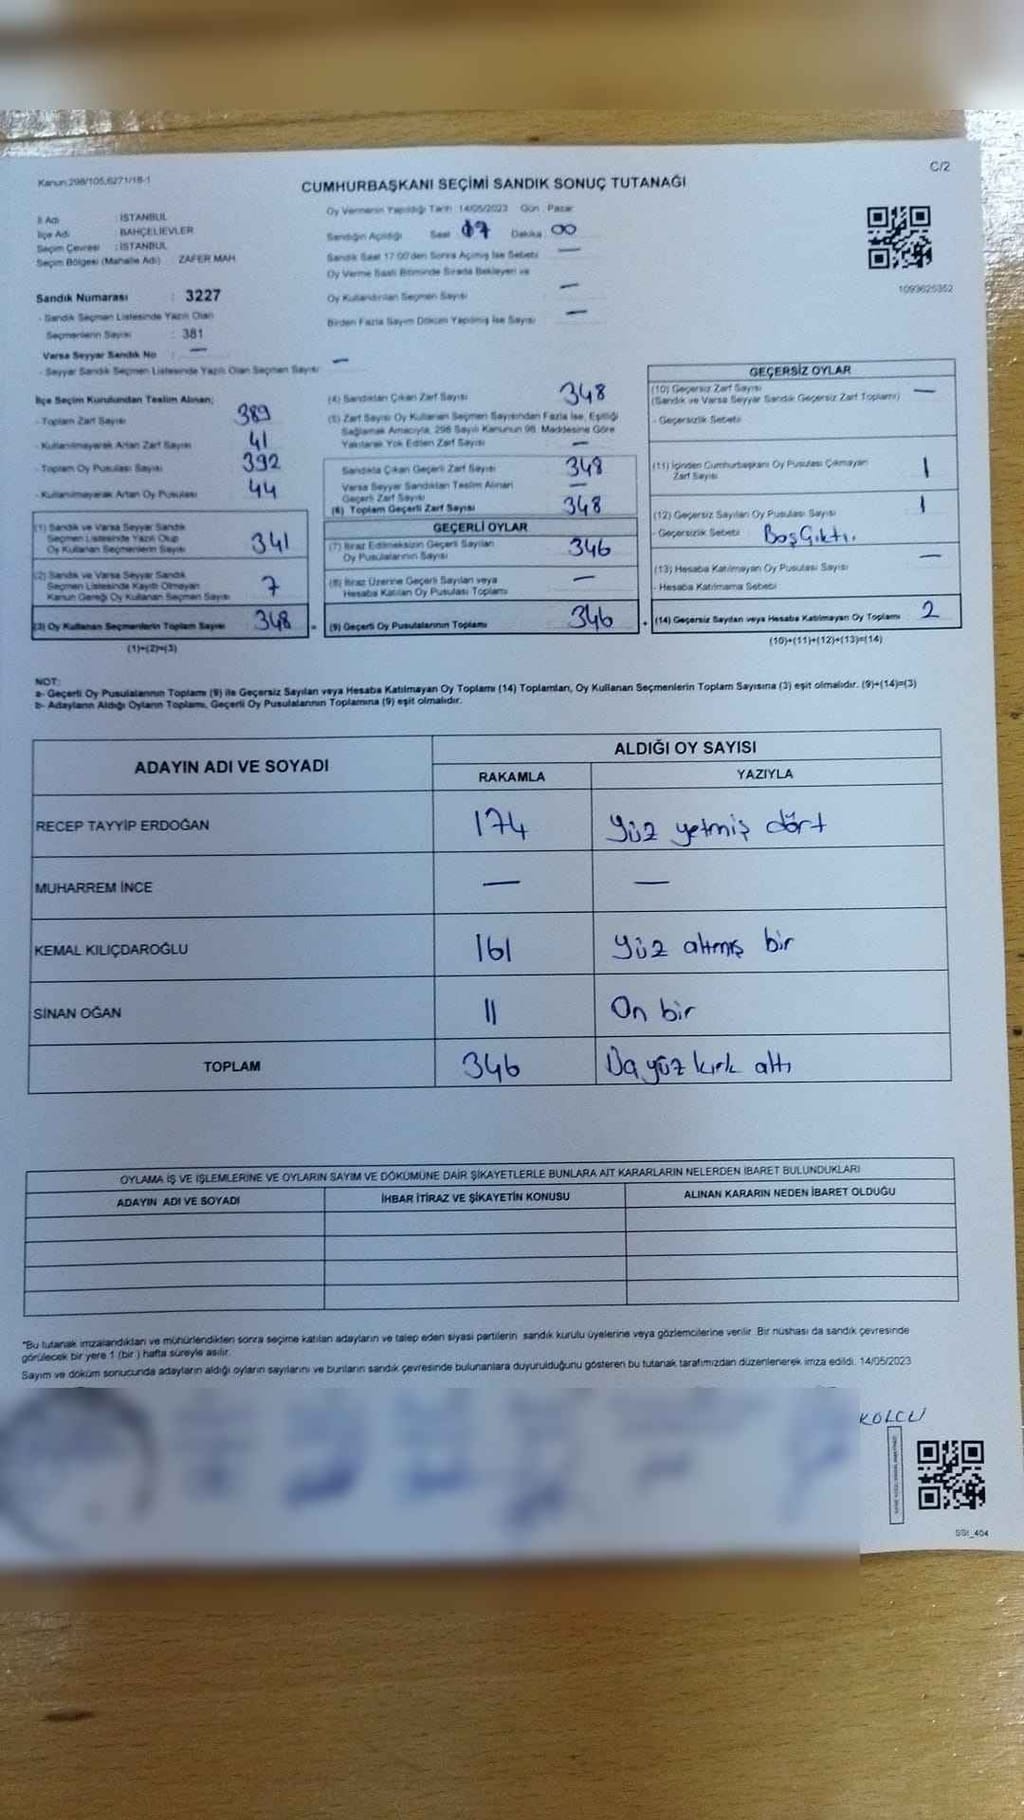 Kanun:298/105,6271/18-1
C/2
CUMHURBAŞKANI SEÇİMİ SANDIK SONUÇ TUTANAĞI
İl Adı : İSTANBUL
İlçe Adı : BAHÇELİEVLER
Seçim Çevresi : İSTANBUL
Seçim Bölgesi (Mahalle Adı) : ZAFER MAH
Sandık Numarası : 3227
- Sandık Seçmen Listesinde Yazılı Olan
Seçmenlerin Sayısı : 381
Varsa Seyyar Sandık No : —
- Seyyar Sandık Seçmen Listesinde Yazılı Olan Seçmen Sayısı —
Oy Vermenin Yapıldığı Tarih :14/05/2023 Gün : Pazar
Sandığın Açıldığı Saat 17 Dakika : 00
Sandık Saat 17:00'den Sonra Açılmış İse Sebebi —
Oy Verme Saati Bitiminde Sırada Bekleyen ve
Oy Kullandırılan Seçmen Sayısı —
Birden Fazla Sayım Döküm Yapılmış İse Sayısı —
1093625352
İlçe Seçim Kurulundan Teslim Alınan;
- Toplam Zarf Sayısı 389
- Kullanılmayarak Artan Zarf Sayısı 41
- Toplam Oy Pusulası Sayısı 392
- Kullanılmayarak Artan Oy Pusulası 44
(1) Sandık ve Varsa Seyyar Sandık
Seçmen Listesinde Yazılı Olup
Oy Kullanan Seçmenlerin Sayısı 341
(2) Sandık ve Varsa Seyyar Sandık
Seçmen Listesinde Kayıtlı Olmayan
Kanun Gereği Oy Kullanan Seçmen Sayısı 7
(3) Oy Kullanan Seçmenlerin Toplam Sayısı 348
(1)+(2)=(3)
(4) Sandıktan Çıkan Zarf Sayısı 348
(5) Zarf Sayısı Oy Kullanan Seçmen Sayısından Fazla İse, Eşitliği
Sağlamak Amacıyla, 298 Sayılı Kanunun 98. Maddesine Göre
Yakılarak Yok Edilen Zarf Sayısı —
Sandıkta Çıkan Geçerli Zarf Sayısı 348
Varsa Seyyar Sandıktan Teslim Alınan
Geçerli Zarf Sayısı —
(6) Toplam Geçerli Zarf Sayısı 348
GEÇERLİ OYLAR
(7) İtiraz Edilmeksizin Geçerli Sayılan
Oy Pusulalarının Sayısı 346
(8) İtiraz Üzerine Geçerli Sayılan veya
Hesaba Katılan Oy Pusulası Toplamı —
= (9) Geçerli Oy Pusulalarının Toplamı 346
GEÇERSİZ OYLAR
(10) Geçersiz Zarf Sayısı —
(Sandık ve Varsa Seyyar Sandık Geçersiz Zarf Toplamı)
- Geçersizlik Sebebi
(11) İçinden Cumhurbaşkanı Oy Pusulası Çıkmayan
Zarf Sayısı 1
(12) Geçersiz Sayılan Oy Pusulası Sayısı 1
- Geçersizlik Sebebi Boş Çıktı.
(13) Hesaba Katılmayan Oy Pusulası Sayısı —
- Hesaba Katılmama Sebebi
+ (14) Geçersiz Sayılan veya Hesaba Katılmayan Oy Toplamı 2
(10)+(11)+(12)+(13)=(14)
NOT:
a- Geçerli Oy Pusulalarının Toplamı (9) ile Geçersiz Sayılan veya Hesaba Katılmayan Oy Toplamı (14) Toplamları, Oy Kullanan Seçmenlerin Toplam Sayısına (3) eşit olmalıdır. (9)+(14)=(3)
b- Adayların Aldığı Oyların Toplamı, Geçerli Oy Pusulalarının Toplamına (9) eşit olmalıdır.
ADAYIN ADI VE SOYADI
ALDIĞI OY SAYISI
RAKAMLA YAZIYLA
RECEP TAYYİP ERDOĞAN 174 Yüz yetmiş dört
MUHARREM İNCE — —
KEMAL KILIÇDAROĞLU 161 Yüz altmış bir
SİNAN OĞAN 11 On bir
TOPLAM 346 yüz kırk altı
OYLAMA İŞ VE İŞLEMLERİNE VE OYLARIN SAYIM VE DÖKÜMÜNE DAİR ŞİKAYETLERLE BUNLARA AİT KARARLARIN NELERDEN İBARET BULUNDUKLARI
ADAYIN ADI VE SOYADI İHBAR İTİRAZ VE ŞİKAYETİN KONUSU ALINAN KARARIN NEDEN İBARET OLDUĞU
*Bu tutanak imzalandıktan ve mühürlendikten sonra seçime katılan adayların ve talep eden siyasi partilerin sandık kurulu üyelerine veya gözlemcilerine verilir. Bir nüshası da sandık çevresinde
görülecek bir yere 1 (bir ) hafta süreyle asılır.
Sayım ve döküm sonucunda adayların aldığı oyların sayılarını ve bunların sandık çevresinde bulunanlara duyurulduğunu gösteren bu tutanak tarafımızdan düzenlenerek imza edildi. 14/05/2023
KOLCU